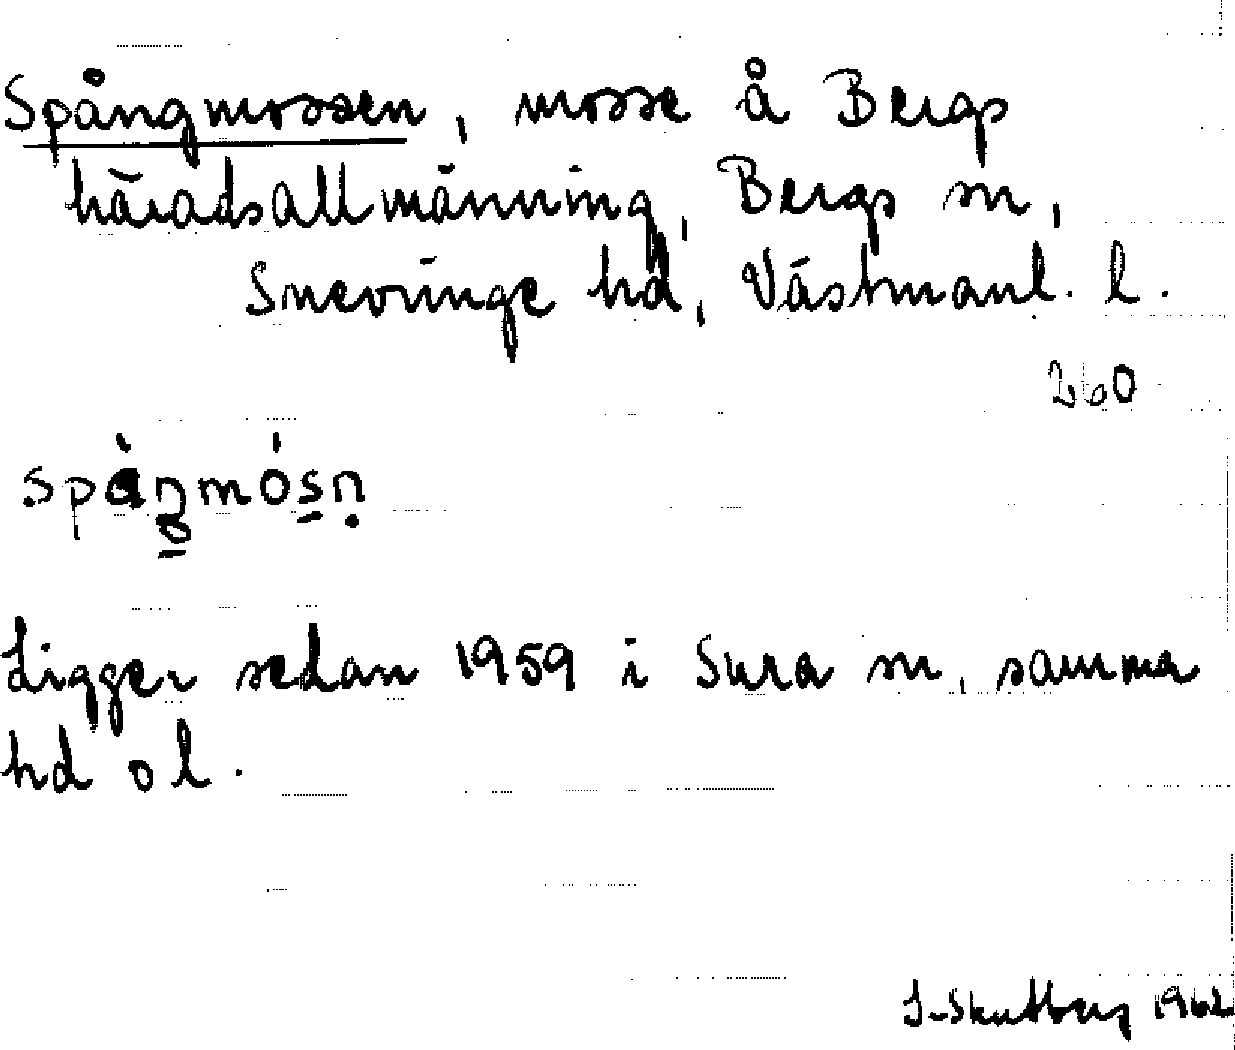 Spångmossen, mosse å Bergs
häradsallmänning, Bergs sn,
Snevringe hd, Västmanl. l.
260
spåŋmósn̥
Ligger sedan 1959 i Sura sn, samma
hd o l.
1962